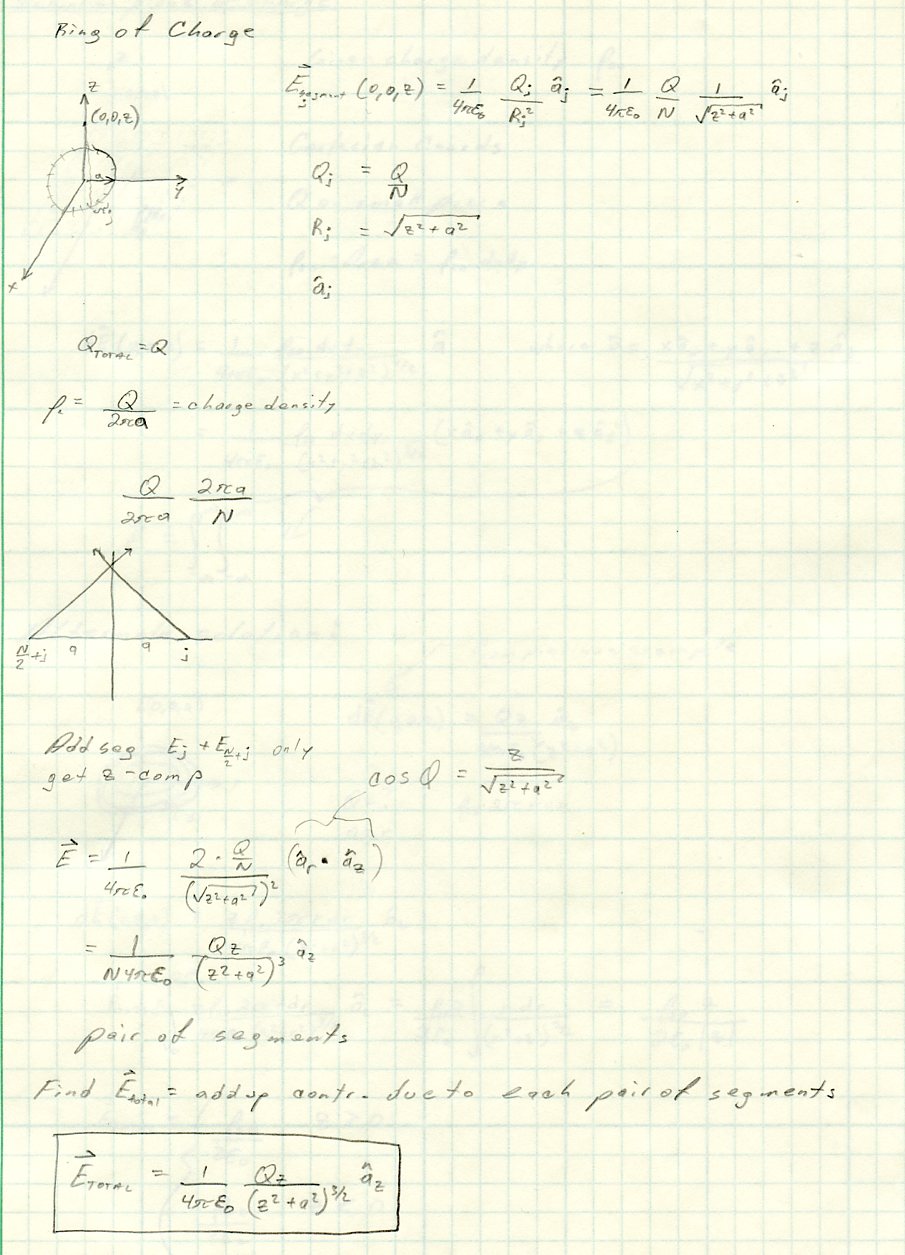 Ring of Charge
E⃗ segment j (0,0,z) = 1/(4πε₀) Q_j/R_j² â_j = 1/(4πε₀) Q/N 1/√(z²+a²) â_j
z
(0,0,z)
a
y
j
x
Q_j = Q/N
R_j = √(z²+a²)
â_j
Q_TOTAL = Q
ρ_L = Q/(2πa) = charge density
Q/(2πa) 2πa/N
N/2+j a a j
Add seg E_j + E_{N/2+j} only
get z-comp
cos Q = z/√(z²+a²)
E⃗ = 1/(4πε₀) (2·Q/N)/(√(z²+a²))² (â_r · â_z)
= 1/(N4πε₀) Qz/(z²+a²)³ â_z
pair of segments
Find E⃗_total = add up contr. due to each pair of segments
E⃗_TOTAL = 1/(4πε₀) Qz/(z²+a²)^{3/2} â_z